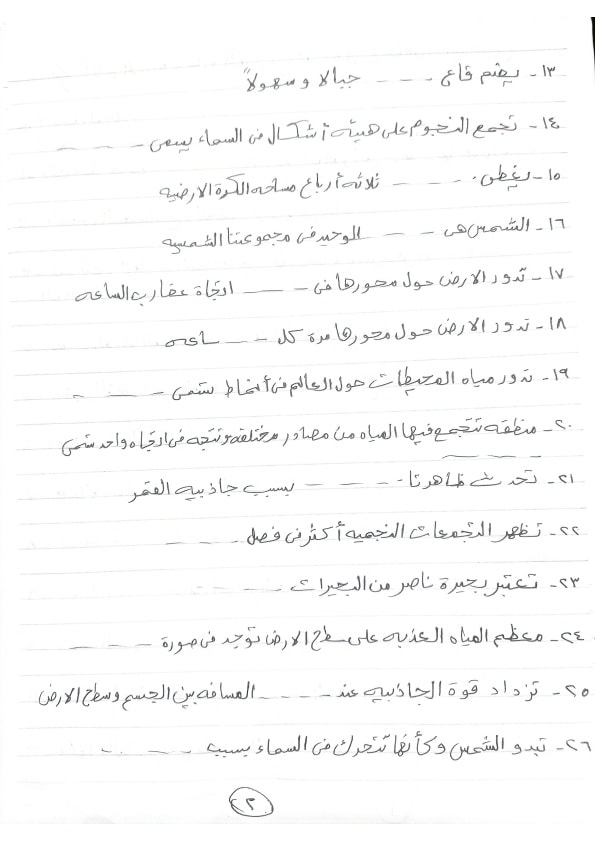 ١٣- يضم قاع ---- جبالا وسهولاً
١٤- تجمع النجوم على هيئة أشكال فى السماء يسمى ----
١٥- يغطى ---- ثلاثة أرباع مساحه الكرة الارضيه
١٦- الشمس هى ---- الوحيد فى مجموعتنا الشمسيه
١٧- تدور الارض حول محورها فى ---- اتجاة عقارب الساعه
١٨- تدور الارض حول محورها مرة كل ---- ساعه
١٩- تدور مياه المحيطات حول العالم فى أنماط تسمى ----
٢٠- منطقه تتجمع فيها المياه من مصادر مختلفه وتتجه فى اتجاه واحد تسمى ----
٢١- تحدث ظاهرتا ---- بسبب جاذبيه القمر
٢٢- تظهر التجمعات النجميه أكثر فى فصل ----
٢٣- تعتبر بحيرة ناصر من البحيرات ----
٢٤- معظم المياه العذبه على سطح الارض توجد فى صورة ----
٢٥- تزداد قوة الجاذبيه عند ---- المسافه بين الجسم وسطح الارض
٢٦- تبدو الشمس وكأنها تتحرك فى السماء بسبب ----
٢